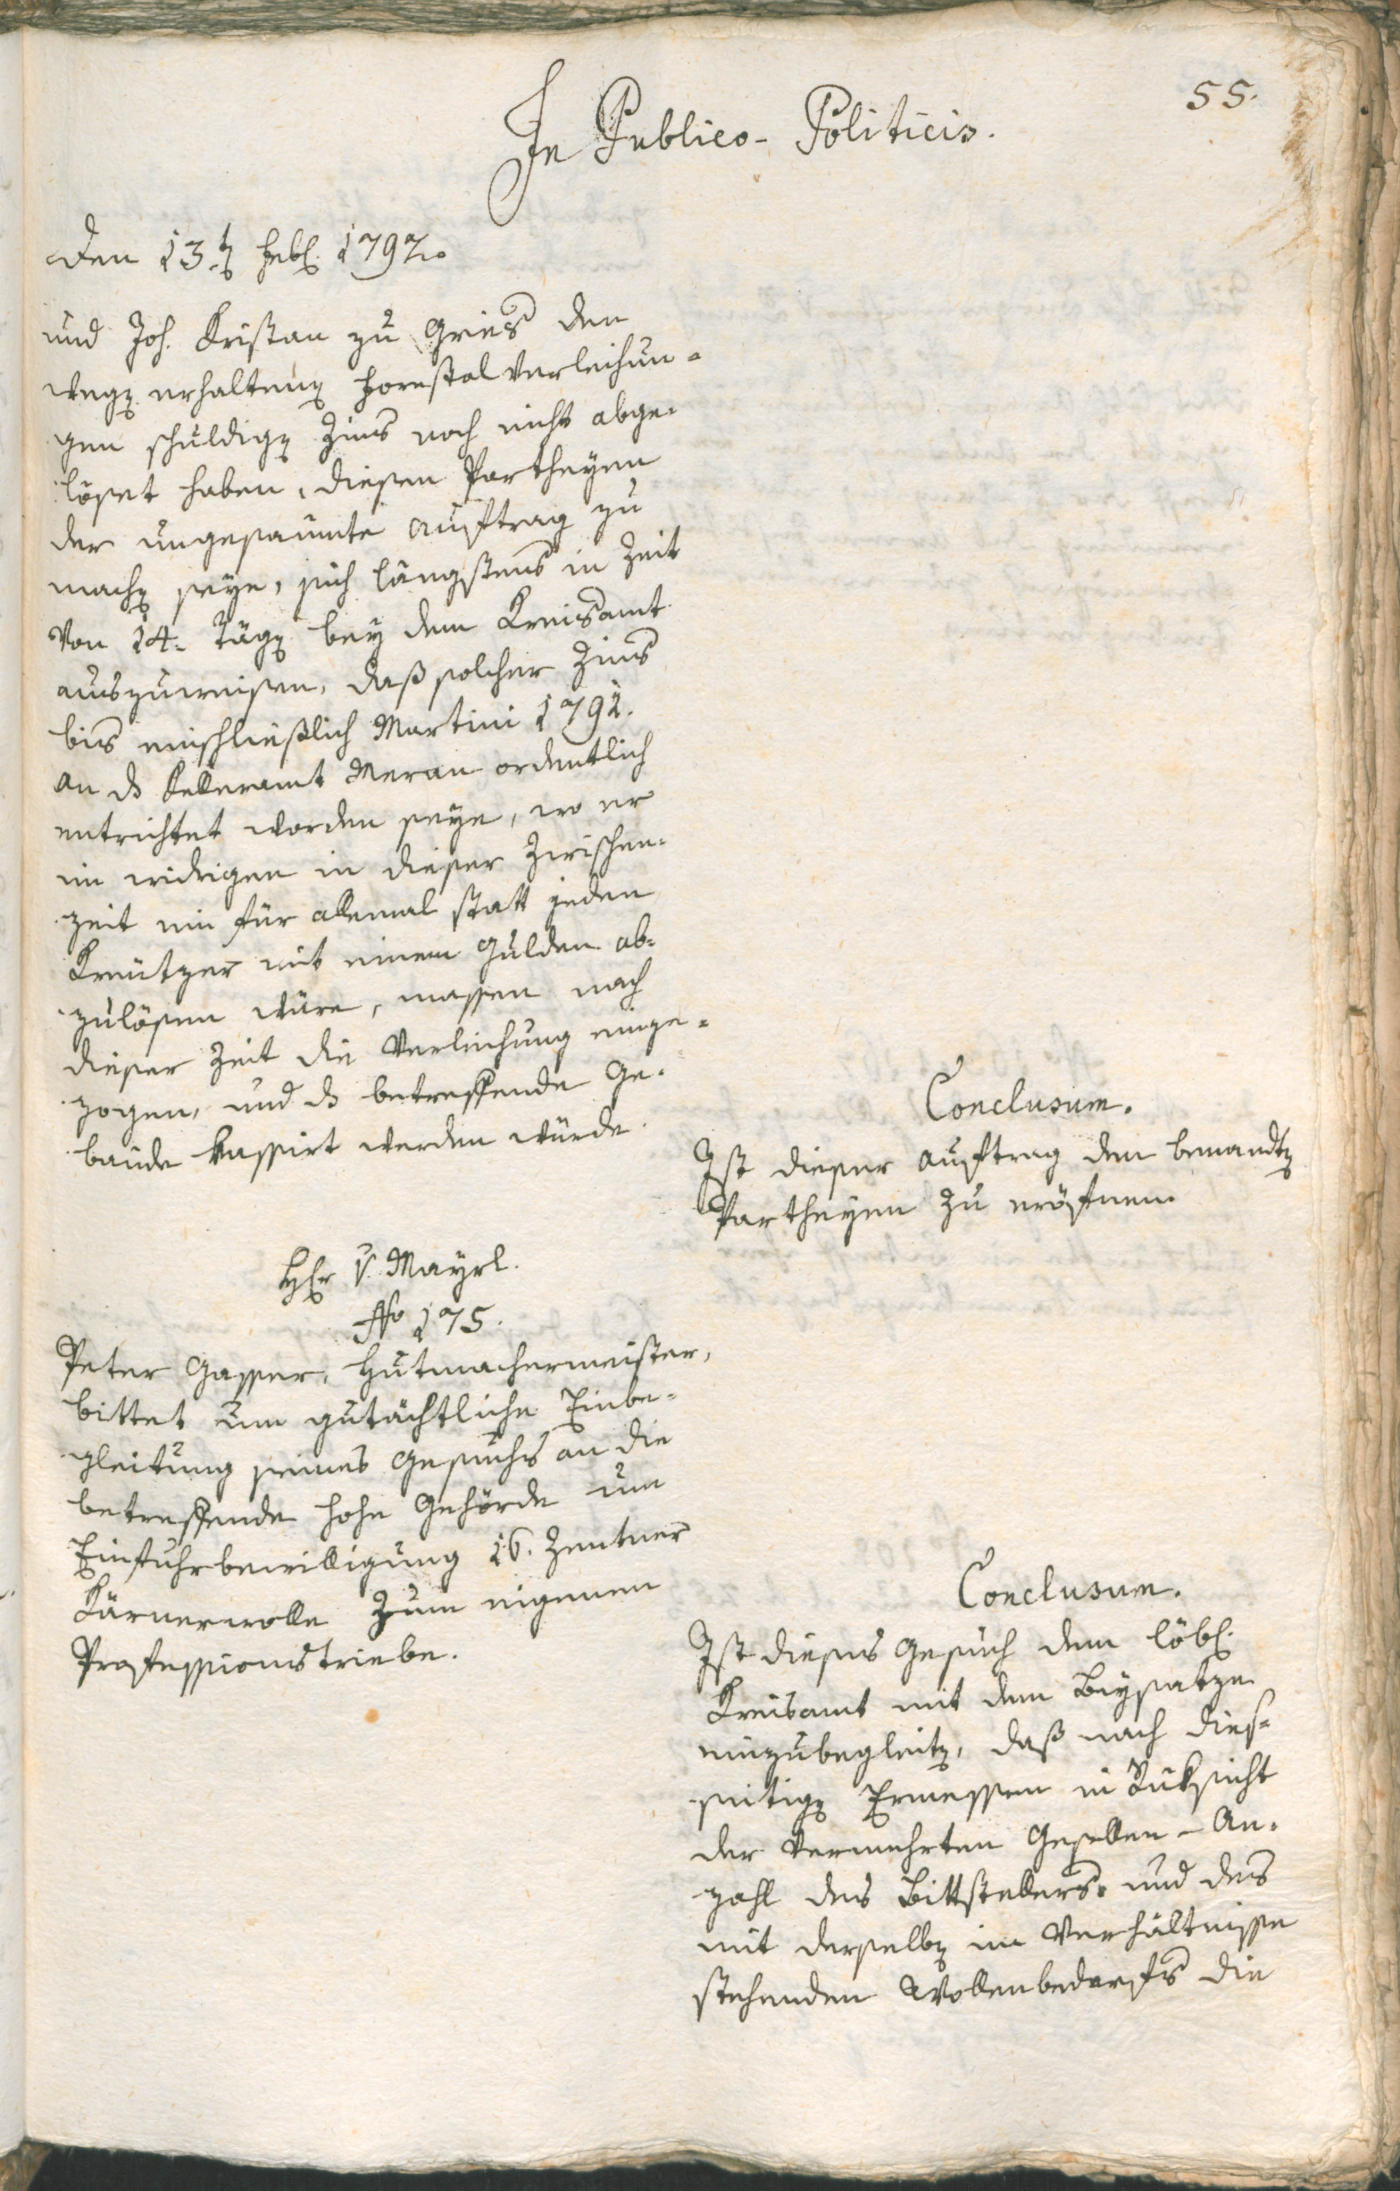 55.
In Publico-Politicis.
Den 13.t Febr. 1792.
und Joh. Kristan zu Gries den
wegen erhaltenen Forestal Verleihun-
gen schuldigen Zins noch nicht abge-
löset haben, diesen Partheyen
der ungesaumte Auftrag zu
machen seye, sich längstens in Zeit
von 14. Tägen bey dem Kreisamt
auszuweisen, daß solcher Zins
bis einschließlich Martini 1791.
an das Kelleramt Meran ordentlich
entrichtet worden seye, wo er
im widrigen in dieser Zwischen-
zeit ein für allemal statt jeden
Kreutzer mit einem Gulden ab-
zulösen wäre, massen nach
dieser Zeit die Verleihung einge-
zogen, und das betreffende Ge-
baude kassirt werden würde.
Conclusum.
Ist dieser Auftrag den benandten
Partheyen zu eröfnen.
Hr v. Mayrl.
No 175.
Peter Gasser, Hutmachermeister,
bittet um gutächtliche Einbe-
gleitung seines Gesuchs an die
betreffende hohe Behörde um
Einfuhrbewilligung 16. Zentner
Kärnerwolle zum eigenen
Professionstriebe.
Conclusum.
Ist dieses Gesuch dem löbl.
Kreisamt mit dem Beysatze
einzubegleiten, daß nach dies-
seitigen Ermessen in Rüksicht
der vermehrten Gesellen-An-
zahl des Bittstellers und des
mit derselben im Verhältnisse
stehenden Wollenbedarfs die